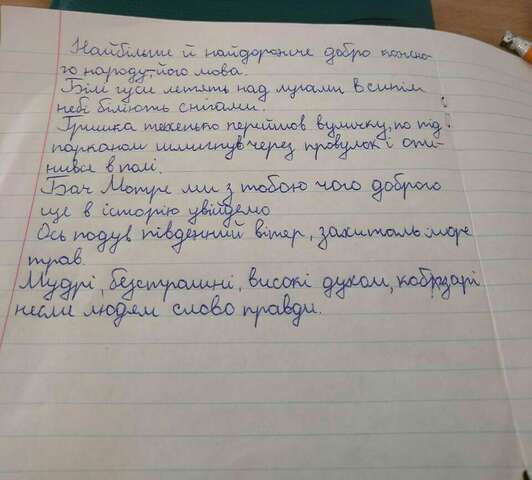 Найбільше й найдорожче добро кожно-
го народу-його мова.
Білі гуси летять над лугами, в синім
небі біліють снігами.
Гришка тихенько перейшов вуличку, по під
парканом шмигнув через провулок і опи-
нився в полі.
Бач Мотре ми з тобою чого доброго
ще в історію увійдемо
Ось подув південний вітер, захиталь море
трав.
Мудрі, безстрашні, високі духом, кобзарі
несли людям слово правди.